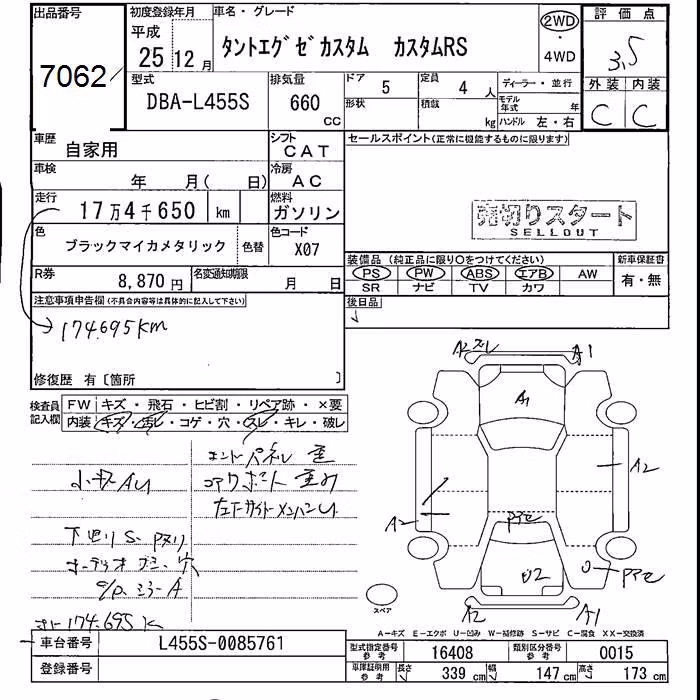 出品番号
7062
初度登録年月
平成
25年12月
車名・グレード
タントエグゼカスタム カスタムRS
2WD
4WD
評価点
3.5
外装 内装
C C
型式
DBA-L455S
排気量
660
CC
ドア 5
形状
定員 4 人
積載 kg
ディーラー・並行
モデル年式 年
ハンドル 左・右
車歴
自家用
シフト
CAT
車検
年 月( 日)
冷房
AC
走行
17万4千650 km
燃料
ガソリン
色
ブラックマイカメタリック
色替
色コード
X07
R券
8,870円
名変通知期限
月 日
セールスポイント(正常に機能するものに限ります)
売切りスタート
SELLOUT
装備品 (純正品に限り○をつけてください)
PS PW ABS エアB AW
SR ナビ TV カワ
新車保証書
有・無
後日品
注意事項申告欄(不具合内容等は具体的に記入して下さい)
174.695km
修復歴 有〔箇所 〕
検査員記入欄
FW キズ・飛石・ヒビ割・リペア跡・×要
内装 キズ・汚レ・コゲ・穴・スレ・キレ・破レ
小キズAU
下回りS
174.695K
A1
A1
A2
A2
A2
U2
A1
スペア
A-キズ E-エクボ U-凹み W-補修跡 S-サビ C-腐食 XX-交換済
車台番号
L455S-0085761
登録番号
型式指定番号 参考
16408
類別区分番号 参考
0015
車庫証明用 参考
長さ 339 cm
幅 147 cm
高さ 173 cm